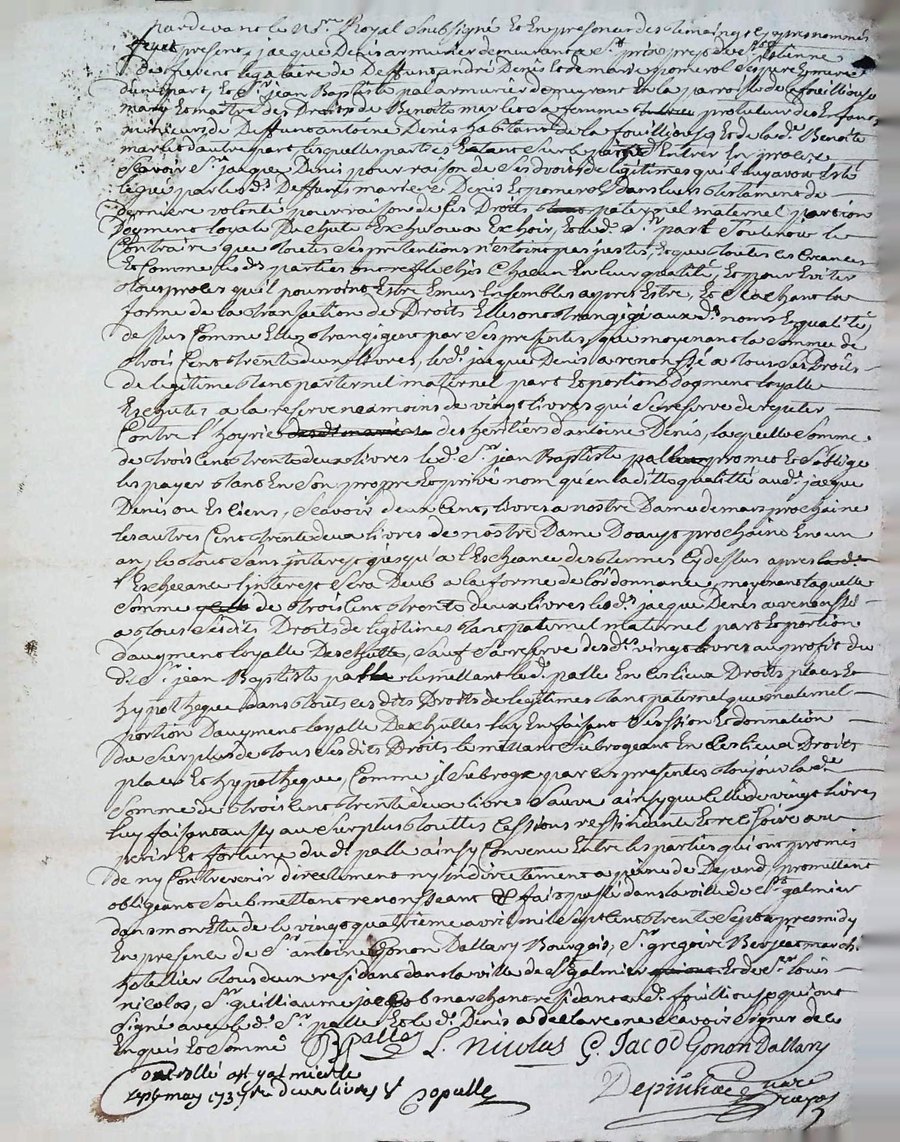 pardevant le N.re Royal soubsigné Et En presence des témoins Cy apres nommés
furent presents, jacque Denis armurier demeurant a St
de Deffunt andré Denis Et de marie pomerol Ses pere Et mere
dune part, Et Sr jean Baptiste palle armurier demeurant En la parroisse de la fouillouse
mary Et maitre des Droits de Benoite marlet sa femme protuteur des Enfans
mineurs de Deffunt antoine Denis habitant de la fouillouse Et de lad. Benoite
marlet dautre part, lesquelles parties Estant Sur le point d'Entrer En proces
Scavoir Sr jacque Denis pour raison de Ses droits de legitimes qui luy avoit Esté
legué par lesds Deffunts andré Denis Et pomerol dans leurs testament de
derniere volonté pour raison de Ces Droits paternel maternel portion
Dogment loyale Et led. Sr part Soutenoir le
Contraire que toutes Ses pretentions n'estoint pas justes, Et que toutes les Creances
Et Comme lesds parties ont reflechis Chacun En leur qualité, Et pour Eviter
tous proces quil pourroint Estre Emus Ensembles apres Estre, Et Sachant la
forme de la transaction de Droits Elles ont transigé aux ds noms Et qualité,
dessus Comme Elles transigent par Ses presentes, que moyenant la Somme de
trois Cent trente deux livres, led. jacque Denis a renonssé a tous Ses Droits
de legitime tant parternel maternel part Et portions dogment loyalle
Eschutes a la reserve neadmoins de vingt livres qui Se reserve de repeter
Contre l'hoyrie des heritiers d'antoine Denis, laquelle Somme
de trois Cent trente deux livres led. Sr jean Baptiste palle promet Et S'oblige
les payer tant En Son propre Et privé nom qu'en ladite qualitté aud. jacque
Denis ou Es Siens, Scavoir deux Cent livres a nostre Dame de mars prochaine
les autres Cent trente deux livres de nostre Dame Doaust prochaine En un
an, le tout Sans interest jusqu'a l'Escheance des termes Cy dessus apres
l'Escheance l'interest Sera Deub a la forme de l'ordonnance, moyenant laquelle
Somme de trois Cent trente deux livres led. jacque Denis a renonssé
a tous Sesdits Droits de legitimes tant paternel maternel part Et portion
d'augment loyalle Deschutte, Sauf Sa reserve desdes vingt livres au profit du
d. Sr jean Baptiste palle le mettant led. palle En Ces lieux Droits places Et
hypotheque dans touts Ces dits Droits de legitimes tant paternel que maternel
portion D'augment loyalle Deschuttes luy En faisant Cession Et donnation
Du Surplus de tous Sesdits Droits le mettant Subrogeant En Ces lieux Droits
places Et hypotheque, Comme il Subroge par Ces presentes toujour lade
Somme de trois Cent trente deux livres Sauve ainsy que Celle de vingt livres
luy faisant aussy au Surplus touttes Cessions ressindante Et rescisoire au
peril Et fortune dud. palle ainsy Convenu Entre les parties qui ont promis
de ny Contrevenir directement ny indirectement a peine de Depend, promettant
obligeant Soubmettant renonsseant &c fait Et passé dans la ville de St galmier
dans mon Etude le vingt quattrieme avril mil Sept Cent trente Sept apres midy
En presence de Sr antoine Gonon Dallary Bourgois, Sr gregoire march.
hotellier tous deux residant dans la ville de St galmier Et de Sr louis
nicolas, Sr guilliaume jacob marchant residant aud. fouillouse qui ont
Signé avec led. Sr palle Et led. Denis a declaré ne Scavoir Signer de ce
Enquis Et Sommé palle L. Nicolas G. Jacod Gonon Dallary
Controllé a St galmier le
may 1737 re deux livres Copalle